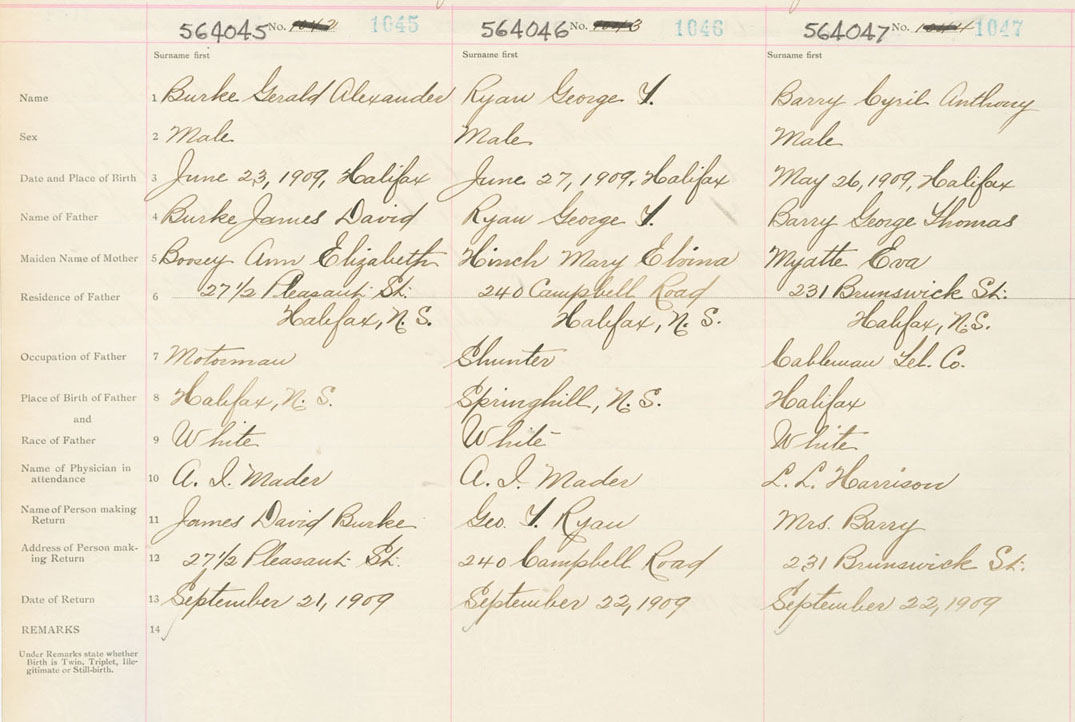 564045 No. 1042 1045 564046 No. 1043 1046 564047 No. 1044 1047
Surname first Surname first Surname first
Name 1 Burke Gerald Alexander Ryan George Y. Barry Cyril Anthony
Sex 2 Male Male Male
Date and Place of Birth 3 June 23, 1909, Halifax June 27, 1909, Halifax May 26, 1909, Halifax
Name of Father 4 Burke James David Ryan George Y. Barry George Thomas
Maiden Name of Mother 5 Boosey Ann Elizabeth Hinch Mary Elvina Myatte Eva
Residence of Father 6 27 1/2 Pleasant St. 240 Campbell Road 231 Brunswick St.
Halifax, N. S. Halifax, N. S. Halifax, N.S.
Occupation of Father 7 Motorman Shunter Cableman Tel. Co.
Place of Birth of Father 8 Halifax, N. S. Springhill, N. S. Halifax
and
Race of Father 9 White White White
Name of Physician in
attendance 10 A. I. Mader A. I. Mader L. L. Harrison
Name of Person making
Return 11 James David Burke Geo. Y. Ryan Mrs. Barry
Address of Person mak-
ing Return 12 27 1/2 Pleasant St. 240 Campbell Road 231 Brunswick St.
Date of Return 13 September 21, 1909 September 22, 1909 September 22, 1909
REMARKS 14
Under Remarks state whether
Birth is Twin, Triplet, Ille-
gitimate or Still-birth.